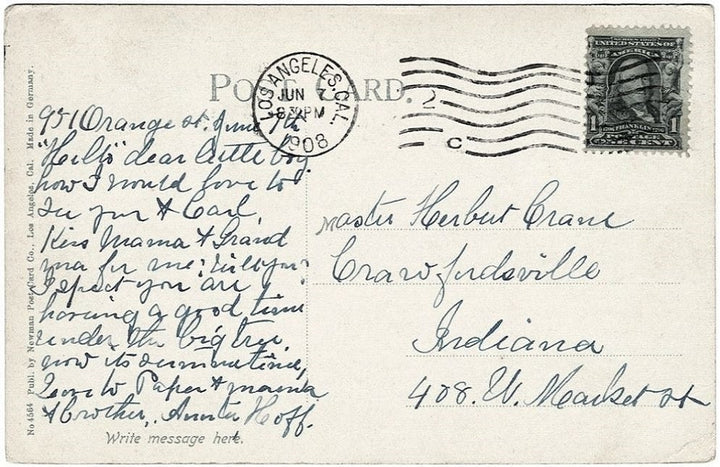 POST CARD.
LOS ANGELES, CAL.
JUN 7
8 PM
1908
2
C
SERIES 1902
UNITED STATES OF AMERICA
1 FRANKLIN 1
ONE CENT
951 Orange st. June 7th
"Hello" dear little boy
how I would love to
see you & Carl,
Kiss Mama & Grand
ma for me: will you?
I spect you are
having a good time
under the big tree,
now its summertime,
Love to Papa & mama
& brother, Auntie Hoff.
Write message here.
Master Herbert Crane
Crawfordsville
Indiana
408. W. Market st
No 4564 Publ. by Newman Post Card Co., Los Angeles, Cal. Made in Germany.